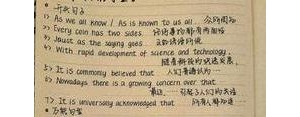 开头句子
1> As we all know / As is known to us all... 众所周知
2> Every coin has two sides. 任何事物都有两面性
3> Jaust as the saying goes 正如俗语所说
4> With rapid development of science and technology.
随着科技的快速发展
5> It is commonly believed that 人们普遍认为…
6> Nowadays there is a growing concern over that
最近, … 引起了人们的关注
7> It is universally acknowledged that 所有人都知道
万能句型